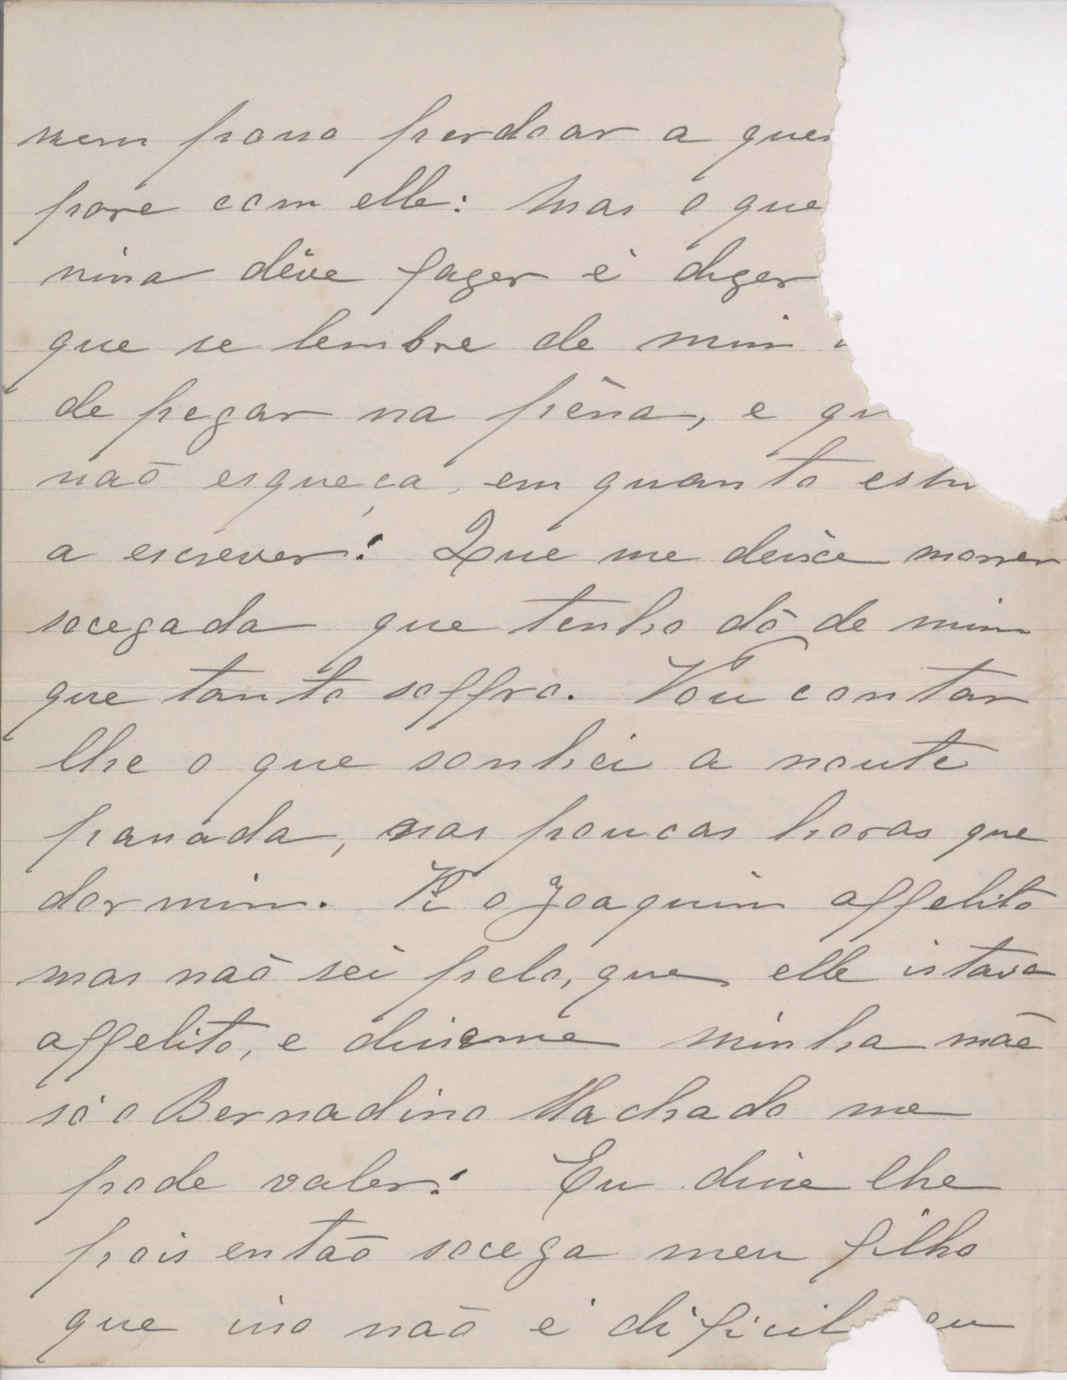 nem posso perdoar a quem
fosse com elle: Mas o que
nina dêve fazer é dizer
que se lembre de mim
de pegar na pêna, e qu
naõ esqueça, em quanto estu
a escrever! Que me deixe morrer
socegada que tenho dó de mim
que tanto soffro. Vou contar
lhe o que sonhei a noute
passada, nas poucas horas que
dormim. Vi o Joaquim affelito
mas naõ sei pelo, que elle istava
affelito, e disseme minha mãe
só o Bernadino Machado me
pode valer! Eu disse lhe
pois entaõ socega meu filho
que isso naõ é dificil eu